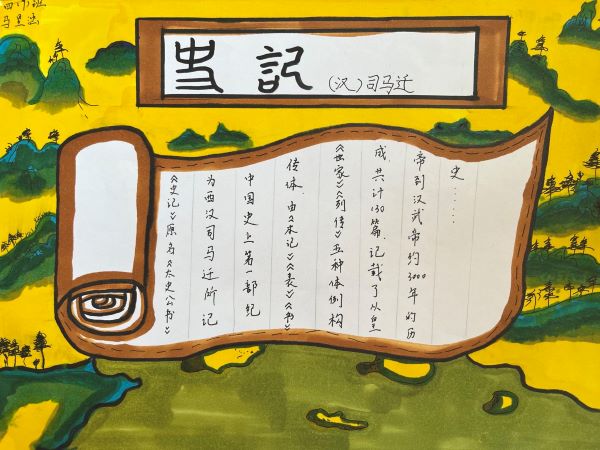 史記 (汉)司马迁
《史记》原名《太史公书》
为西汉司马迁所记
中国史上第一部纪
传体.由《本记》《表》《书》
《世家》《列传》五种体例构
成,共计130篇,记载了从皇
帝到汉武帝约3000年的历
史……